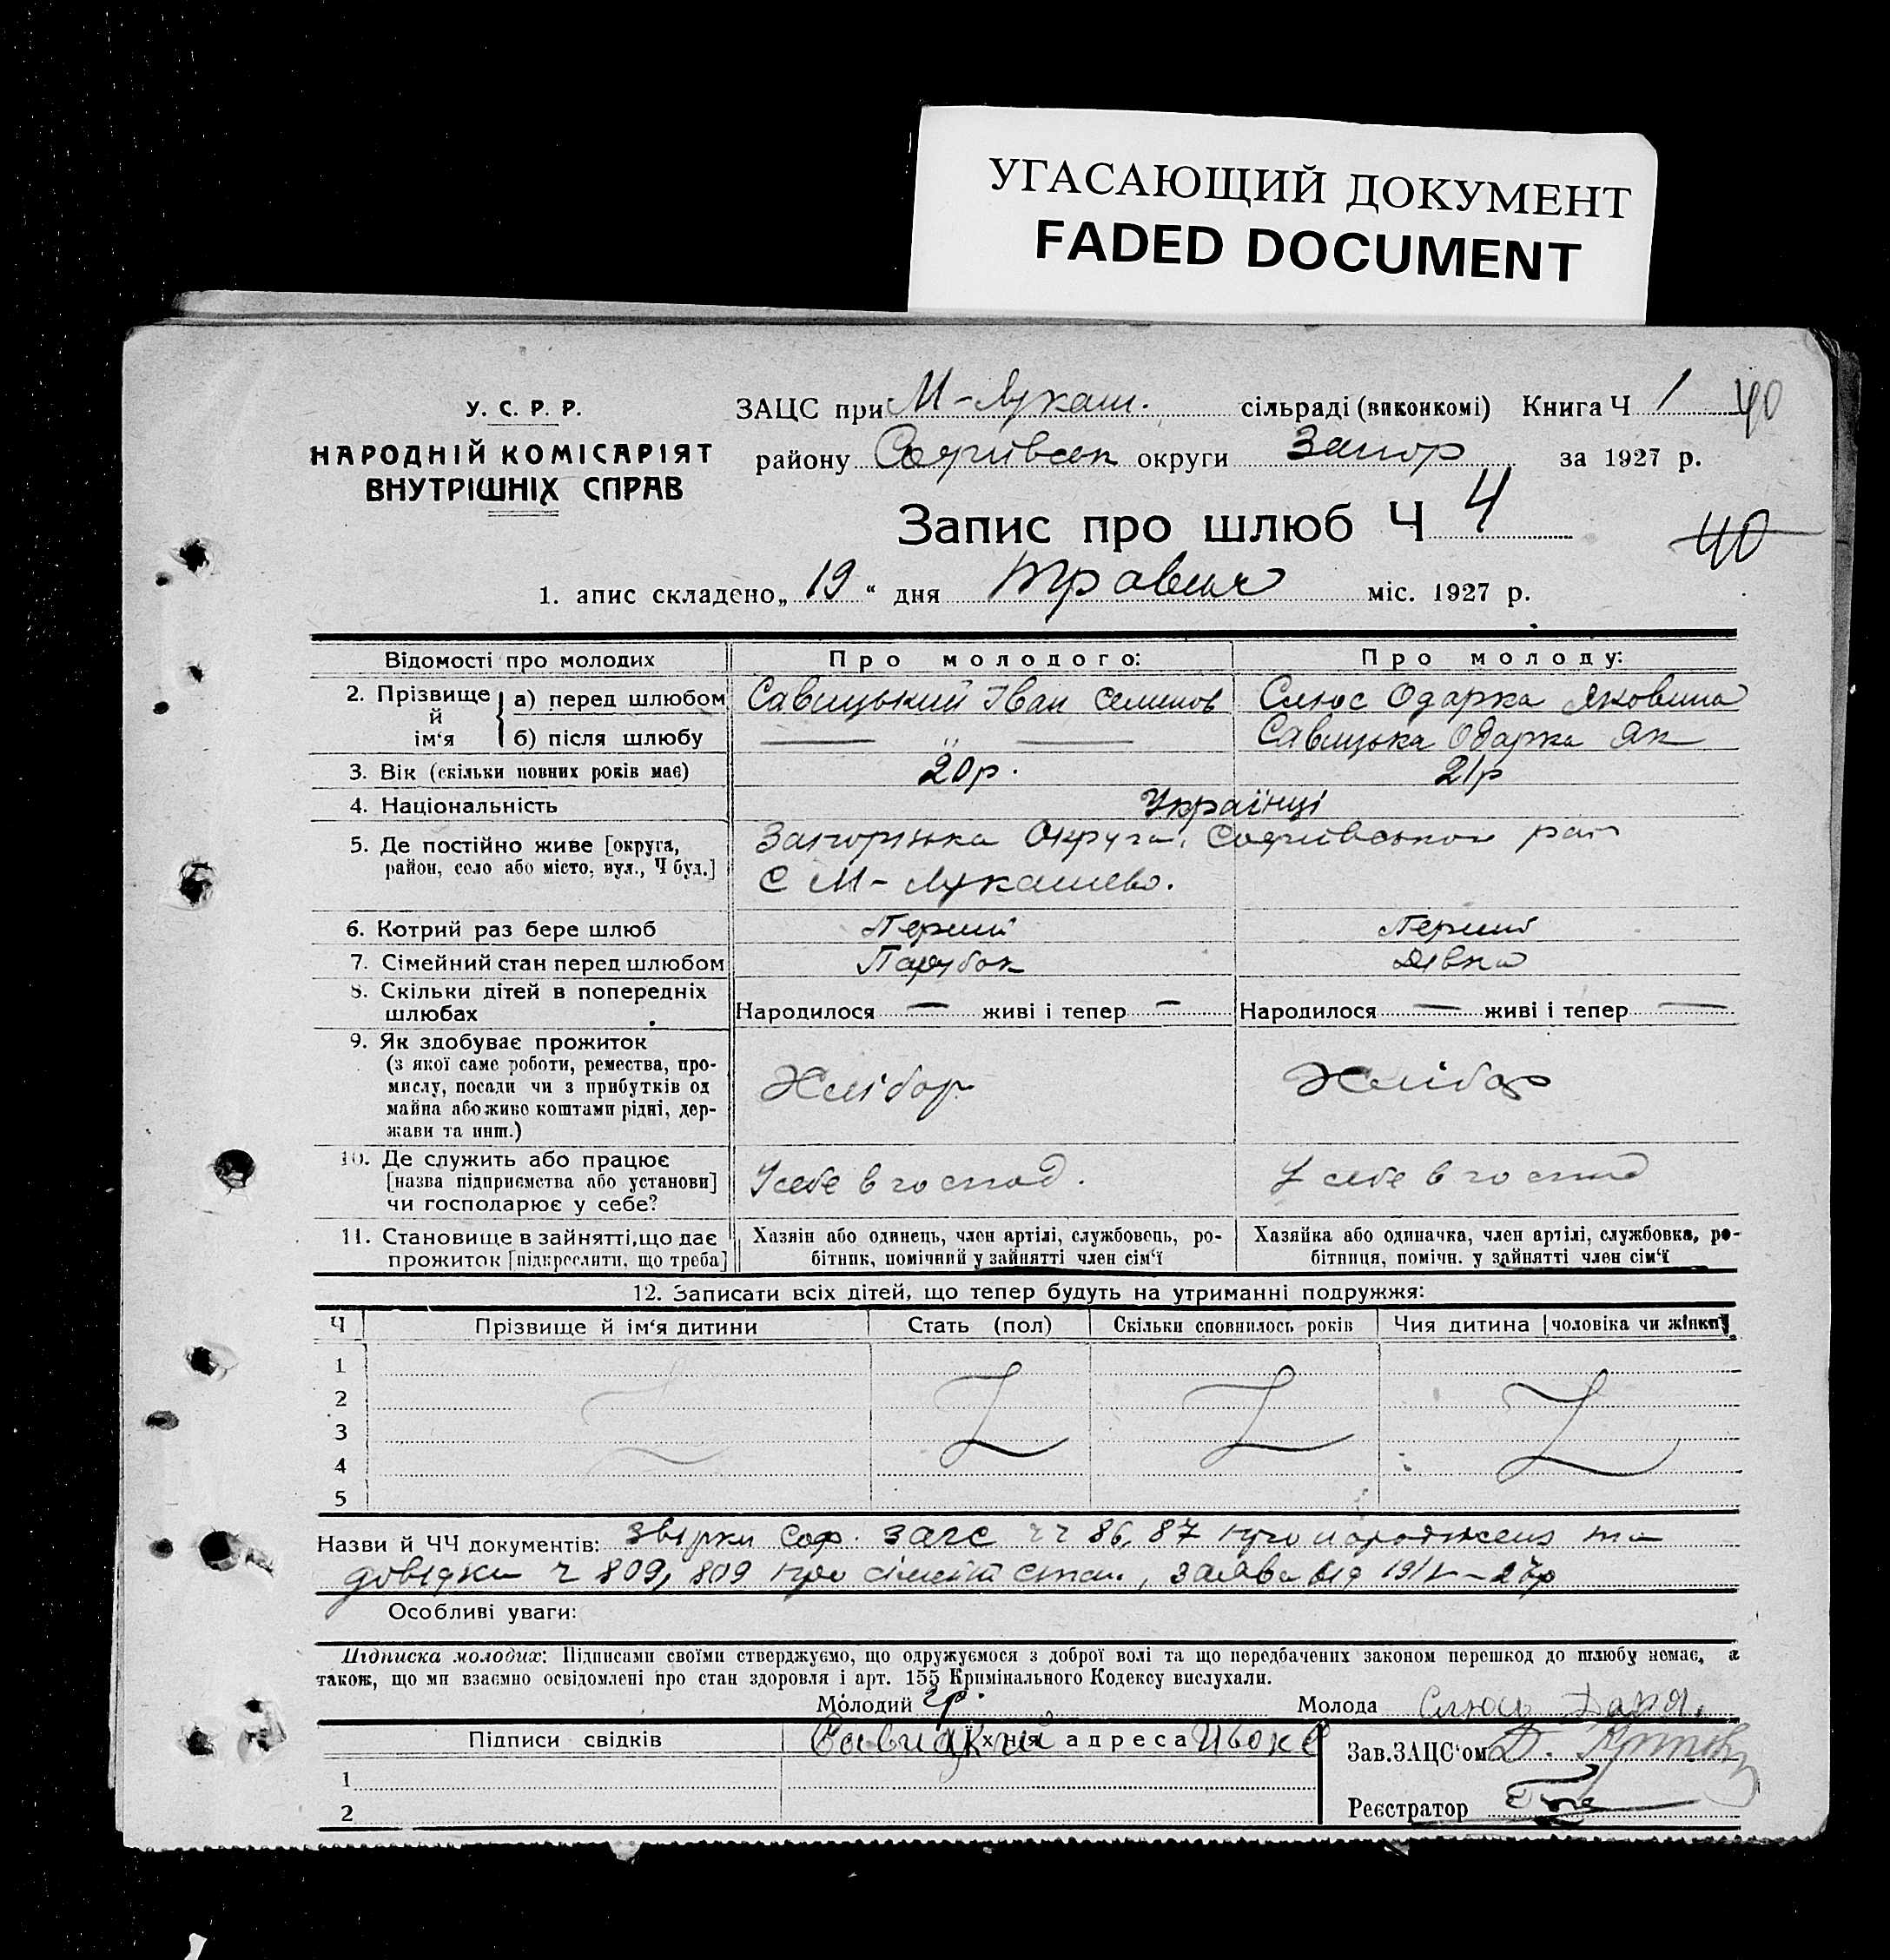 УГАСАЮЩИЙ ДОКУМЕНТ
FADED DOCUMENT
У. С. Р. Р.
НАРОДНІЙ КОМІСАРІЯТ
ВНУТРІШНІХ СПРАВ
ЗАЦС при М-Лукаш. сільраді (виконкомі) Книга Ч 1 40
району Софіївськ округи Запор за 1927 р.
Запис про шлюб Ч 4
40
1. апис складено „19“ дня травня міс. 1927 р.
Відомості про молодих Про молодого: Про молоду:
2. Прізвище й ім‘я а) перед шлюбом Савицький Іван Семенов Слюс Одарка Яковина
б) після шлюбу — „ — Савицька Одарка Як
3. Вік (скільки повних років має) 20р. 21р
4. Національність Українці
5. Де постійно живе [округа, район, село або місто, вул., Ч буд.] Запоризька Округа, Софиівського рай
С М-Лукашево.
6. Котрий раз бере шлюб Перший Перший
7. Сімейний стан перед шлюбом Парубок Дівка
8. Скільки дітей в попередніх шлюбах Народилося — живі і тепер — Народилося — живі і тепер —
9. Як здобуває прожиток
(з якої саме роботи, ремества, про-
мислу, посади чи з прибутків од
майна або живе коштами рідні, дер-
жави та инш.) Хлібор Хлібор
10. Де служить або працює
[назва підприємства або установи]
чи господарює у себе? У себе в господ. У себе в господ
11. Становище в зайнятті, що дає
прожиток [підкреслити, що треба]
Хазяїн або одинець, член артілі, службовець, ро-
бітник, помічний у зайнятті член сім‘ї
Хазяйка або одиначка, член артілі, службовка, ро-
бітниця, помічн. у зайнятті член сім‘ї
12. Записати всіх дітей, що тепер будуть на утриманні подружжя:
Ч Прізвище й ім‘я дитини Стать (пол) Скільки сповнилось років Чия дитина [чоловіка чи жінки]
1
2
3
4
5
Назви й ЧЧ документів: Звірки Соф. загс чч 86, 87 про народження та
довідки ч 809, 809 про сімейний стан, заява від 19/V-27р
Особливі уваги:
Підписка молодих: Підписами своїми стверджуємо, що одружуємося з доброї волі та що передбачених законом перешкод до шлюбу немає, а
також, що ми взаємно освідомлені про стан здоровля і арт. 155 Кримінального Кодексу вислухали.
Молодий Молода Слюсь Дарія.
Підписи свідків Савицкий їхня адреса Зав. ЗАЦС‘ом
1
2 Реєстратор